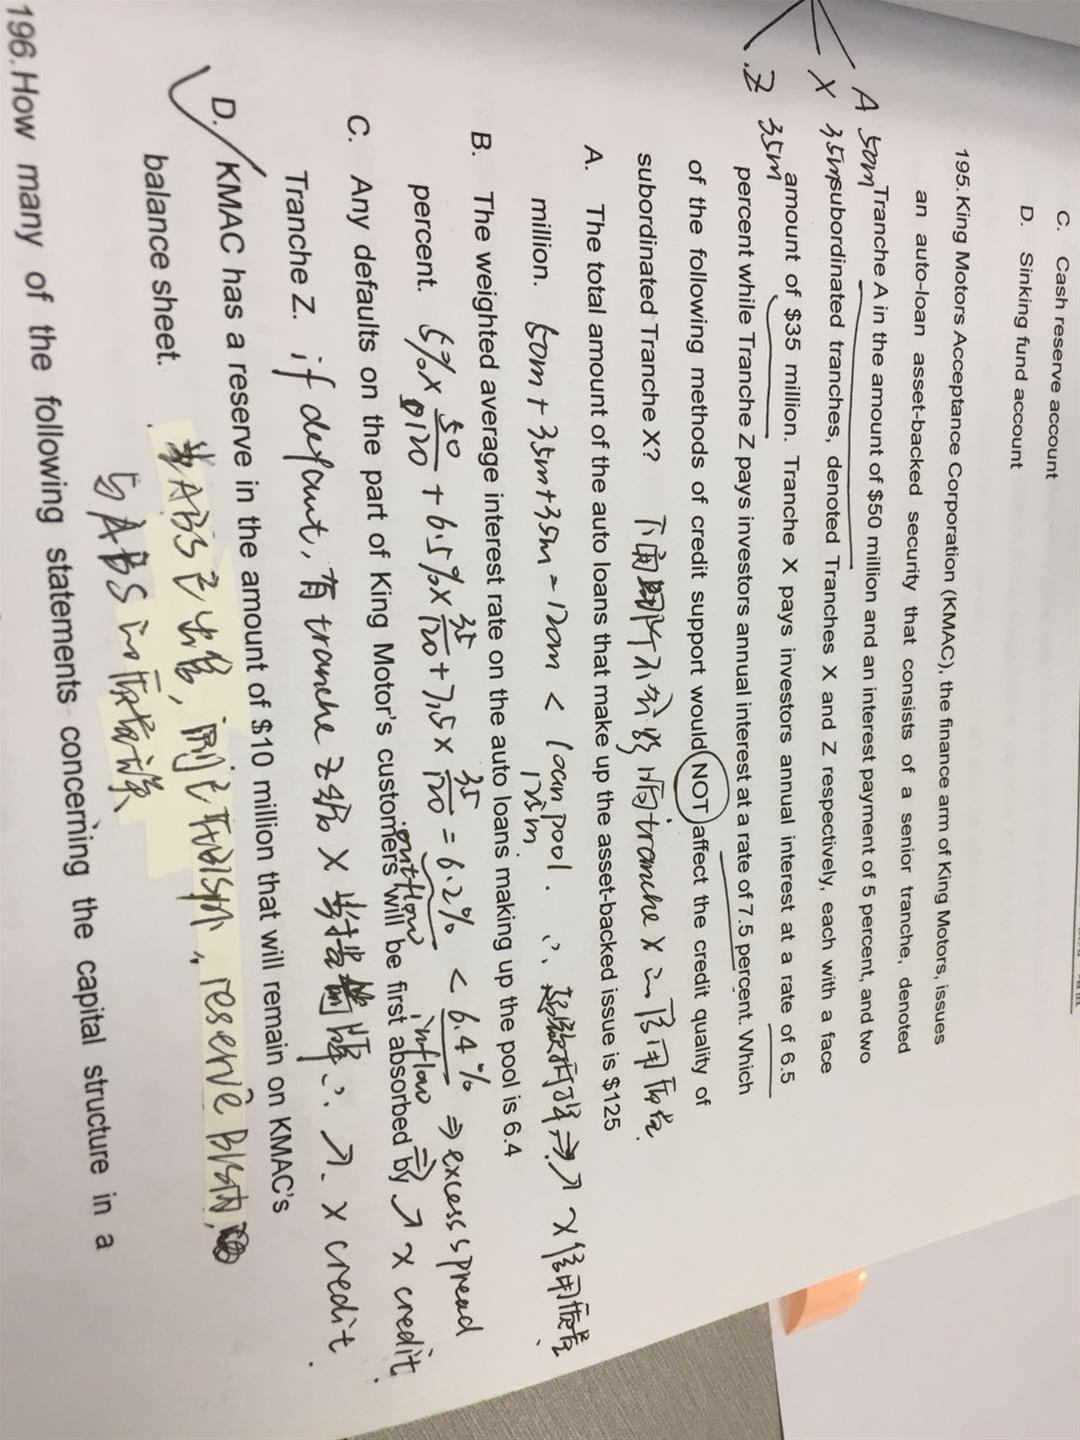 C. Cash reserve account
D. Sinking fund account
195. King Motors Acceptance Corporation (KMAC), the finance arm of King Motors, issues
an auto-loan asset-backed security that consists of a senior tranche, denoted
A 50m Tranche A in the amount of $50 million and an interest payment of 5 percent, and two
X 35m subordinated tranches, denoted Tranches X and Z respectively, each with a face
Z 35m amount of $35 million. Tranche X pays investors annual interest at a rate of 6.5
percent while Tranche Z pays investors annual interest at a rate of 7.5 percent. Which
of the following methods of credit support would NOT affect the credit quality of
subordinated Tranche X? 下面 不会影响 tranche X 的信用质量.
A. The total amount of the auto loans that make up the asset-backed issue is $125
million. 50m + 35m + 35m = 120m < loan pool. ∴ 超额抵押 ⇒ ↗ X信用质量.
125m.
B. The weighted average interest rate on the auto loans making up the pool is 6.4
percent. 5% × 50/120 + 6.5% × 35/120 + 7.5 × 35/120 = 6.2% < 6.4% ⇒ excess spread
outflow inflow ⇒ ↗ X credit.
C. Any defaults on the part of King Motor's customers will be first absorbed by
Tranche Z. if defaut, 有 tranche Z 给 X ∴ ↗. X credit.
D. KMAC has a reserve in the amount of $10 million that will remain on KMAC's
balance sheet. ABS
与ABS
196. How many of the following statements concerning the capital structure in a